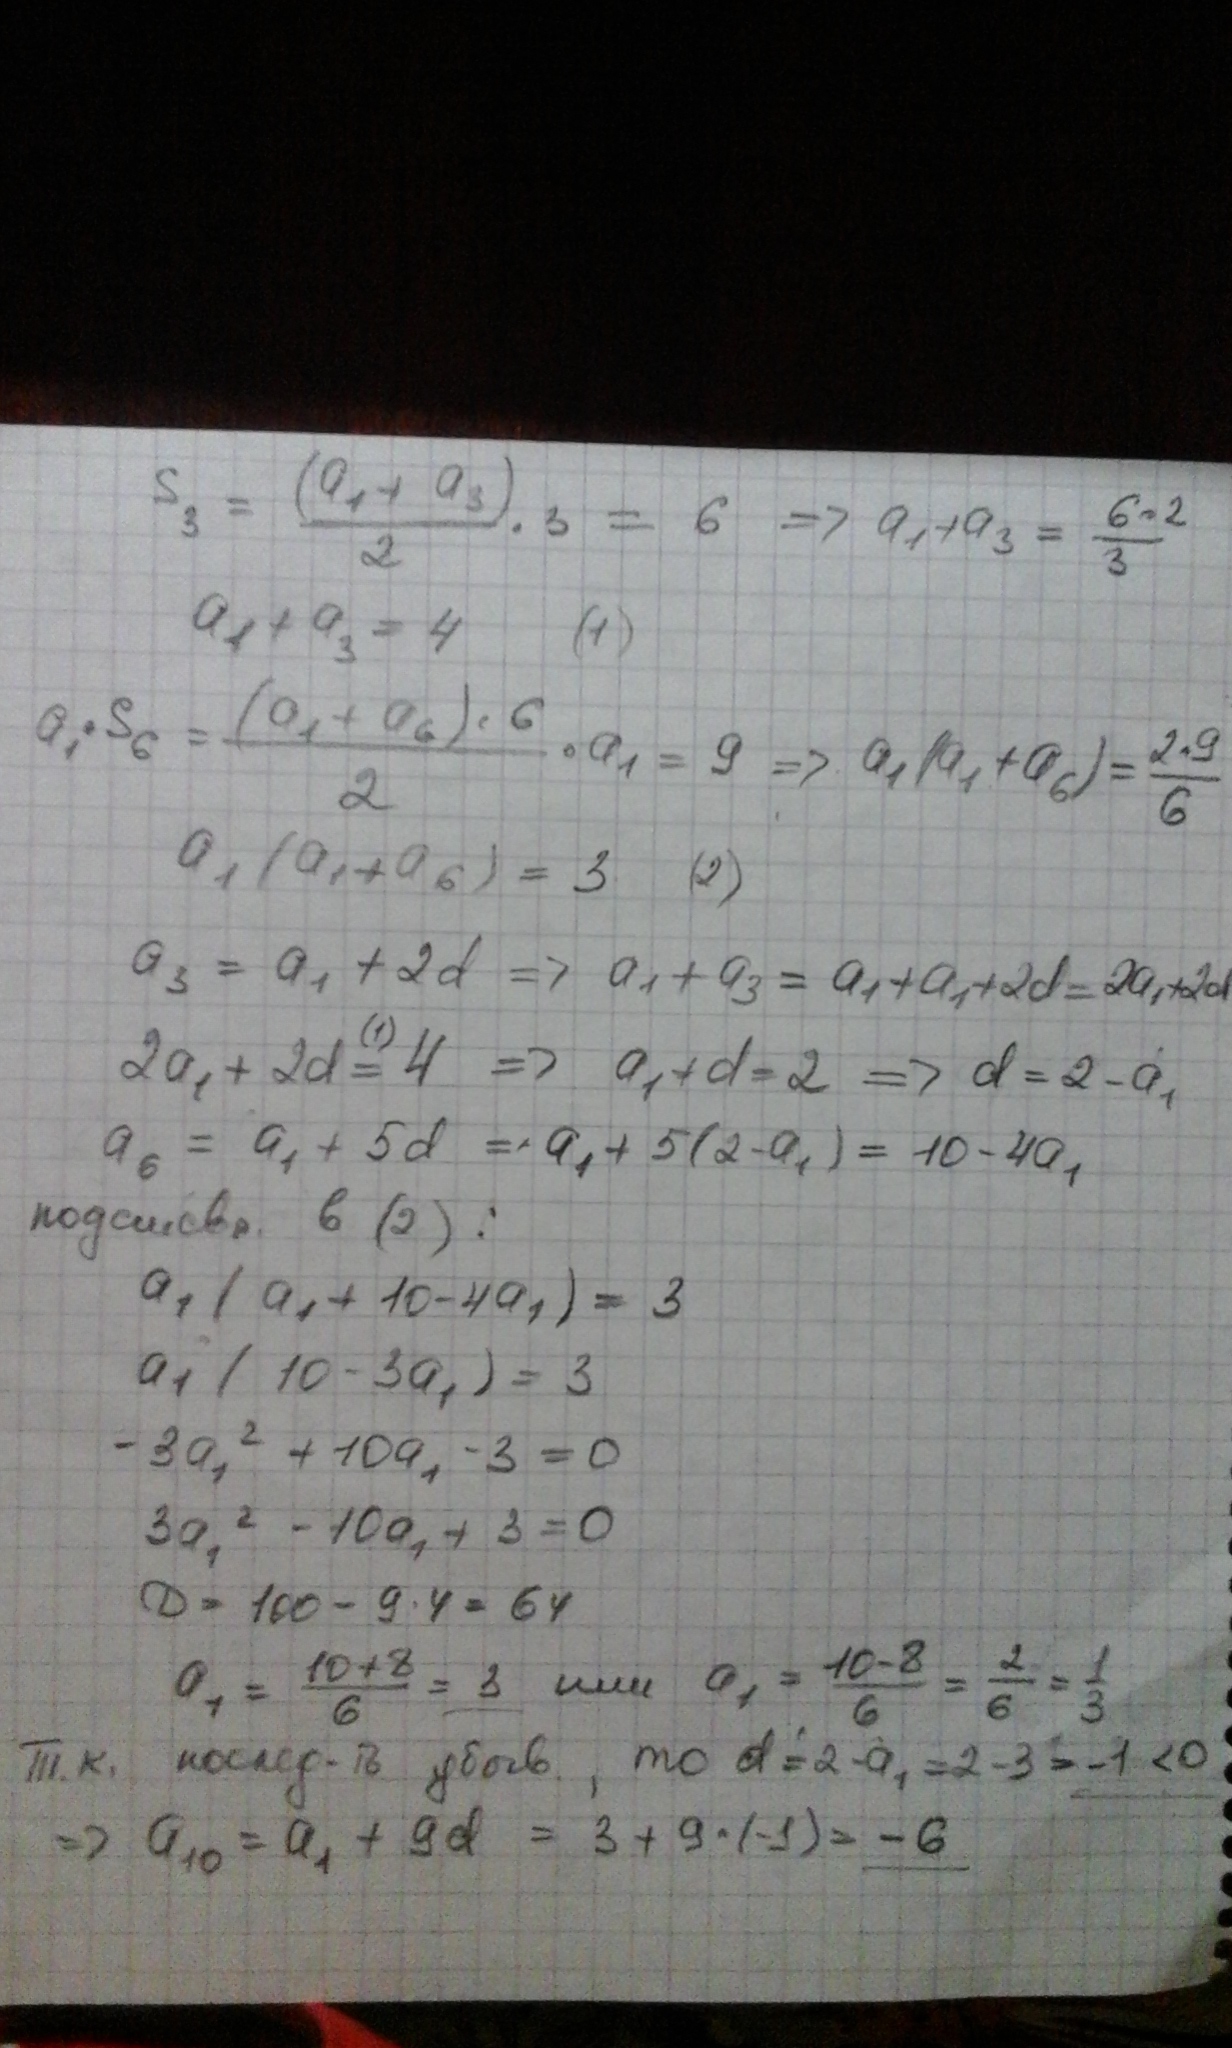 S₃ = (a₁ + a₃)/2 · 3 = 6 => a₁ + a₃ = 6·2/3
a₁ + a₃ = 4 (1)
a₁ · S₆ = (a₁ + a₆) · 6/2 · a₁ = 9 => a₁(a₁ + a₆) = 2·9/6
a₁(a₁ + a₆) = 3 (2)
a₃ = a₁ + 2d => a₁ + a₃ = a₁ + a₁ + 2d = 2a₁ + 2d
2a₁ + 2d =⁽¹⁾ 4 => a₁ + d = 2 => d = 2 - a₁
a₆ = a₁ + 5d = a₁ + 5(2 - a₁) = 10 - 4a₁
подставл. в (2):
a₁(a₁ + 10 - 4a₁) = 3
a₁(10 - 3a₁) = 3
-3a₁² + 10a₁ - 3 = 0
3a₁² - 10a₁ + 3 = 0
D = 100 - 9·4 = 64
a₁ = (10 + 8)/6 = 3 или a₁ = (10 - 8)/6 = 2/6 = 1/3
Т.к. послед-ть убыв., то d = 2 - a₁ = 2 - 3 = -1 < 0
=> a₁₀ = a₁ + 9d = 3 + 9·(-1) = -6